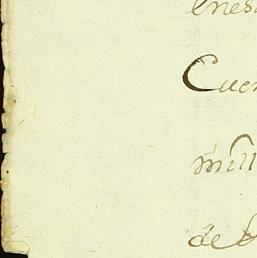 enes
Cuen
mill
de